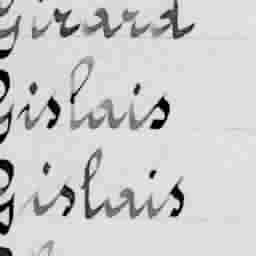 Girard
Gislais
Gislais